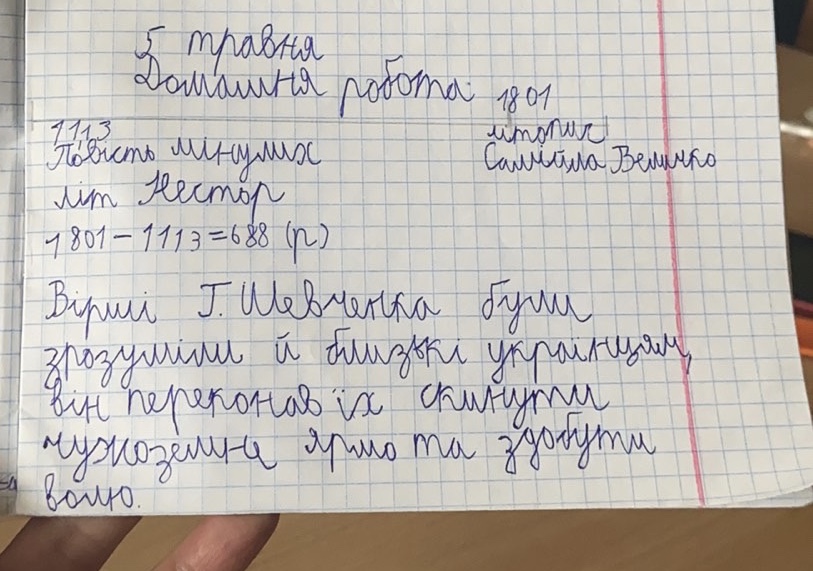 5 травня
Домашня робота
1801
літопис
Самійла Величко
1113
Повість минулих
літ Нестор
1801 - 1113 = 688 (р)
Вірші Т. Шевченка були
зрозуміли й близькі українцям,
він переконав їх скинути
чужоземне ярмо та здобути
волю.